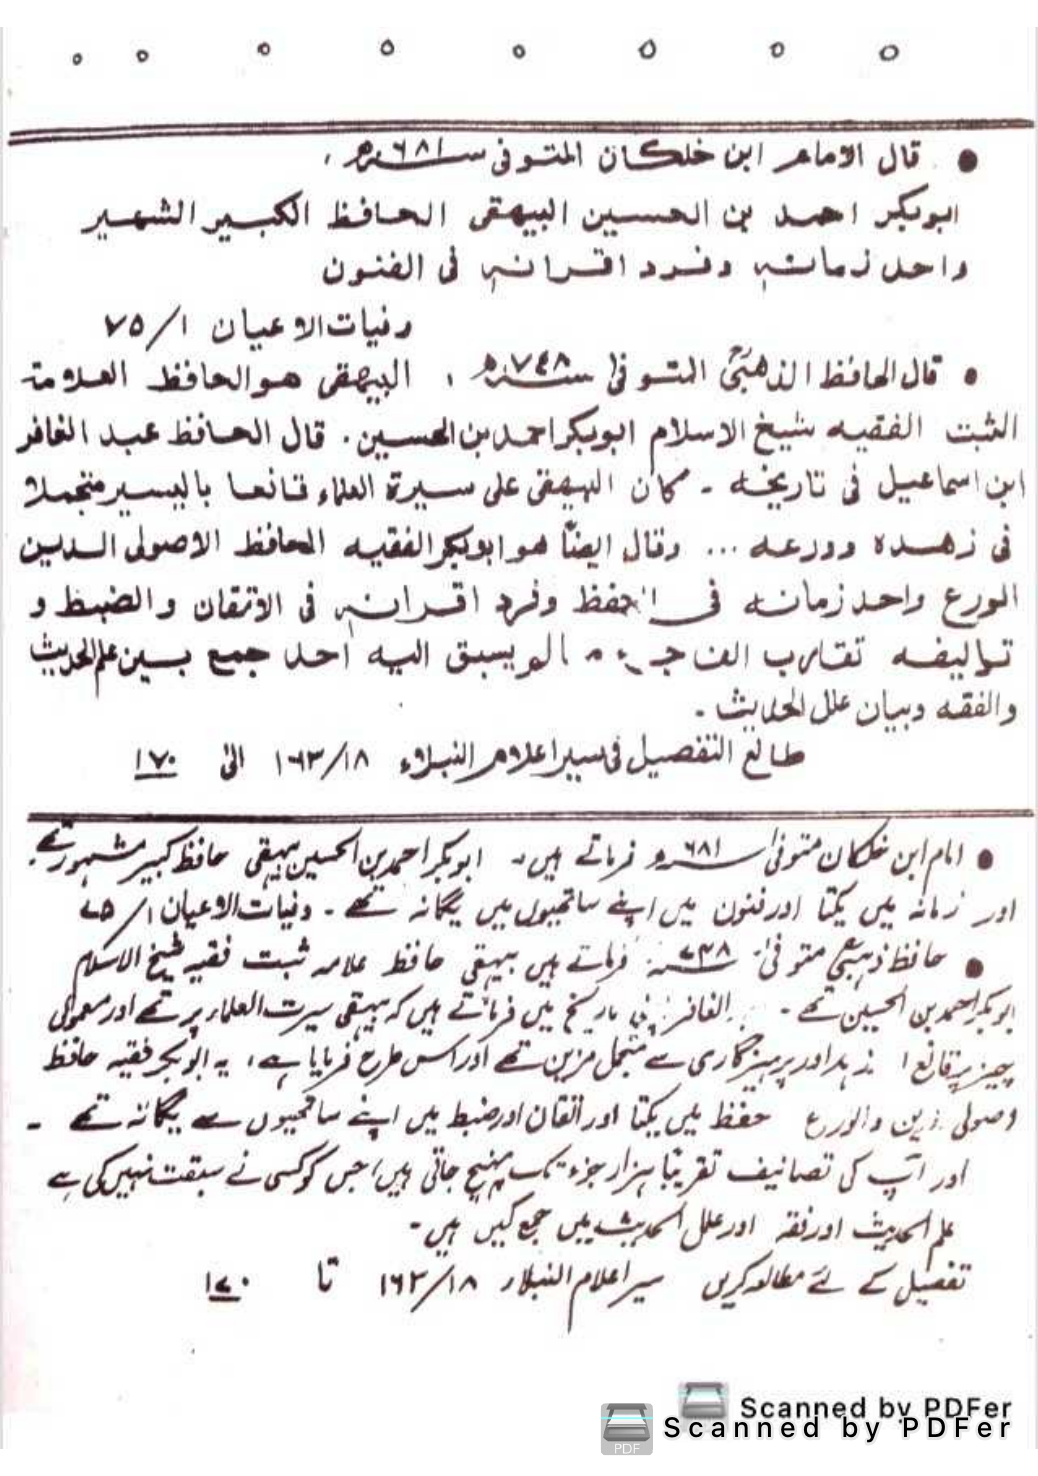 • قال الامام ابن خلكان المتوفى سنہ ٦٨١ھ ،
ابوبكر احمد بن الحسين البيهقى الحافظ الكبير الشهير
واحد زمانہ وفرد اقرانہ فى الفنون
وفيات الاعيان ١/ ٧٥
• قال الحافظ الذهبىؒ المتوفىٰ سنہ ٧٤٨ھ ، البيهقى هو الحافظ العلامة
الثبت الفقيه شيخ الاسلام ابوبكر احمد بن الحسين . قال الحافظ عبد الغافر
ابن اسماعيل فى تاريخه ۔ كان البيهقى على سيرة العلماء قانعا باليسير متجملا
فى زهده وورعه ... وقال ايضاً هو ابوبكر الفقيه الحافظ الاصولى الدين
الورع واحد زمانه فى الحفظ وفرد اقرانہ فى الاتقان والضبط و
تواليفه تقارب الف جزء لم يسبق اليه احد جمع بين علم الحديث
والفقه وبيان علل الحديث ۔
طالع التفصيل فى سير اعلام النبلاء ١٨/ ١٦٣ الىٰ ١٧٠
• امام ابن خلکان متوفیٰ سنہ ٦٨١ھ فرماتے ہیں۔ ابوبکر احمد بن الحسین بیہقی حافظ کبیر مشہور تھے
اور زمانہ میں یکتا اور فنون میں اپنے ساتھیوں میں یگانہ تھے ۔ وفیات الاعیان ١/ ٧٥
• حافظ ذہبیؒ متوفیٰ سنہ ٧٤٨ فرماتے ہیں بیہقی حافظ علامہ ثبت فقیہ شیخ الاسلام
ابوبکر احمد بن الحسین تھے ۔ الغافر نے اپنی تاریخ میں فرماتے ہیں کہ بیہقی سیرت العلماء پر تھے اور معمولی
چیز پر قانع زہد اور پرہیزگاری سے متجمل مزین تھے اور اس طرح فرمایا ہے، یہ ابوبکر فقیہ حافظ
اصولی دین والورع حفظ میں یکتا اور اتقان اور ضبط میں اپنے ساتھیوں سے یگانہ تھے ۔
اور آپ کی تصانیف تقریباً ہزار جزء تک پہنچ جاتی ہیں، جس کو کسی نے سبقت نہیں کی ہے
علم الحدیث اور فقہ اور علل الحدیث میں جمع کیں ہیں ۔
تفصیل کے لئے مطالعہ کریں سیر اعلام النبلاء ١٨/ ١٦٣ تا ١٧٠
Scanned by PDFer
Scanned by PDFer
PDF